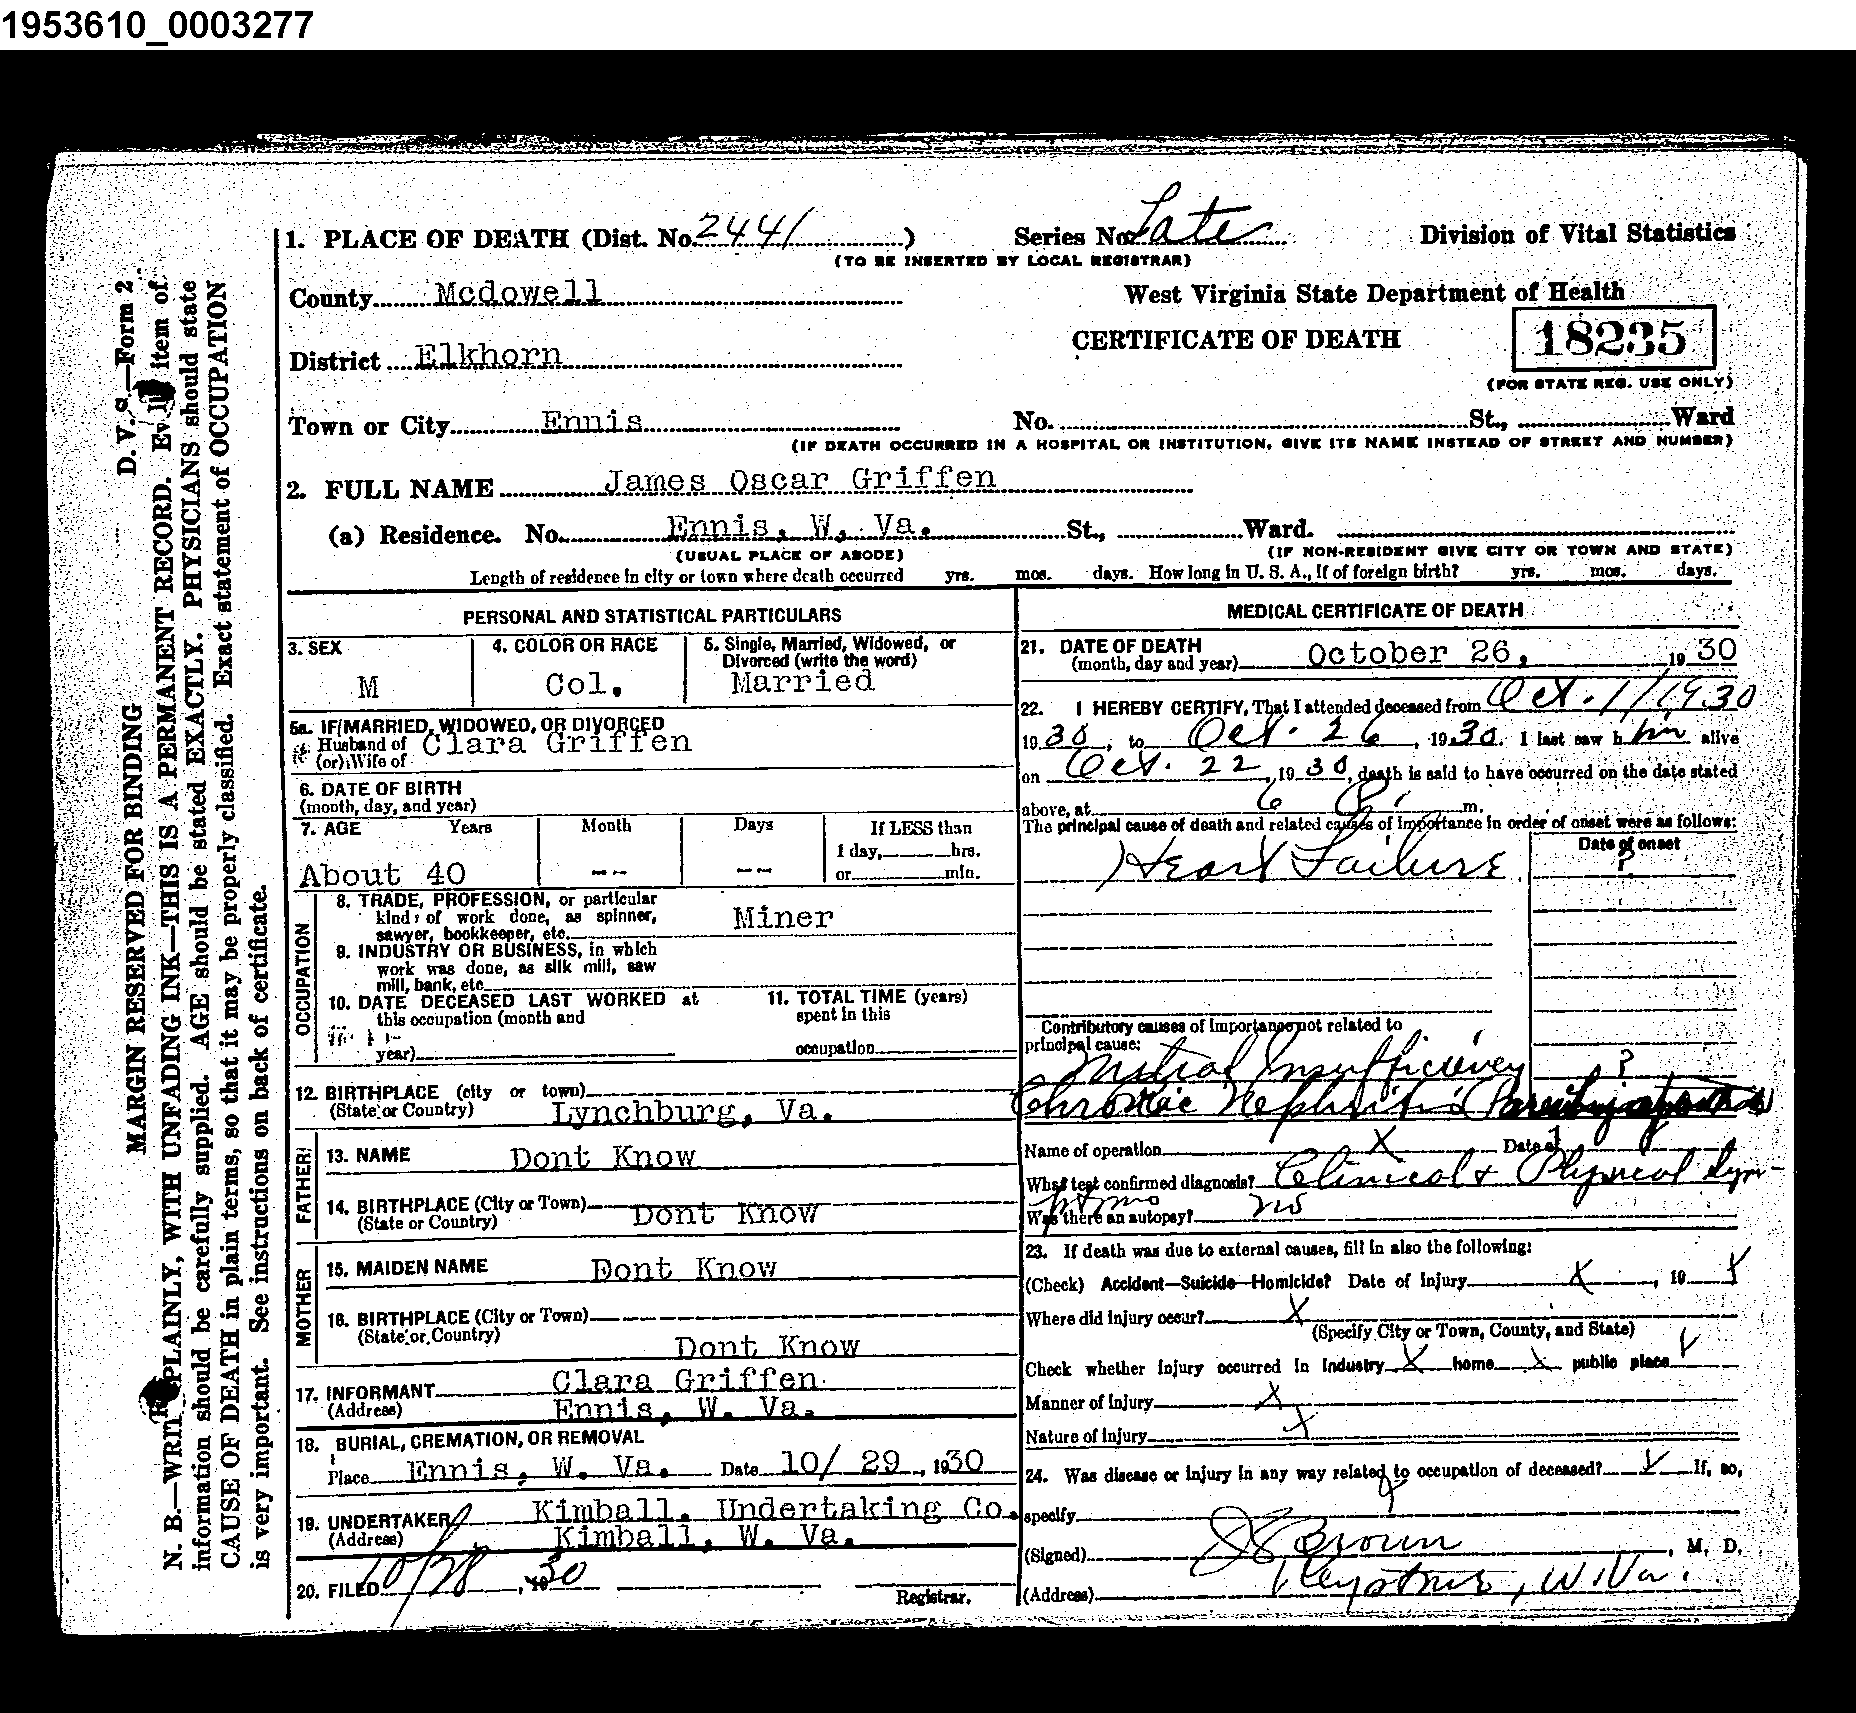 1953610_0003277
1. PLACE OF DEATH (Dist. No. 2441 )
Series No. Late
Division of Vital Statistics
(TO BE INSERTED BY LOCAL REGISTRAR)
County Mcdowell
West Virginia State Department of Health
CERTIFICATE OF DEATH
18235
(FOR STATE REG. USE ONLY)
District Elkhorn
Town or City Ennis
No. St., Ward
(IF DEATH OCCURRED IN A HOSPITAL OR INSTITUTION, GIVE ITS NAME INSTEAD OF STREET AND NUMBER)
2. FULL NAME James Oscar Griffen
(a) Residence. No. Ennis, W. Va. St., Ward.
(USUAL PLACE OF ABODE)
(IF NON-RESIDENT GIVE CITY OR TOWN AND STATE)
Length of residence in city or town where death occurred yrs. mos. days. How long in U. S. A., if of foreign birth? yrs. mos. days.
PERSONAL AND STATISTICAL PARTICULARS
3. SEX
M
4. COLOR OR RACE
Col.
5. Single, Married, Widowed, or
Divorced (write the word)
Married
5a. IF MARRIED, WIDOWED, OR DIVORCED
Husband of Clara Griffen
(or) Wife of
6. DATE OF BIRTH
(month, day, and year)
7. AGE Years Month Days If LESS than
1 day, hrs.
or min.
About 40 -- --
OCCUPATION
8. TRADE, PROFESSION, or particular
kind of work done, as spinner,
sawyer, bookkeeper, etc. Miner
9. INDUSTRY OR BUSINESS, in which
work was done, as silk mill, saw
mill, bank, etc.
10. DATE DECEASED LAST WORKED at
this occupation (month and
year)
11. TOTAL TIME (years)
spent in this
occupation
12. BIRTHPLACE (city or town)
(State or Country) Lynchburg, Va.
FATHER
13. NAME Dont Know
14. BIRTHPLACE (City or Town)
(State or Country) Dont Know
MOTHER
15. MAIDEN NAME Dont Know
16. BIRTHPLACE (City or Town)
(State or Country) Dont Know
17. INFORMANT Clara Griffen
(Address) Ennis, W. Va.
18. BURIAL, CREMATION, OR REMOVAL
Place Ennis, W. Va. Date 10/ 29, 1930
19. UNDERTAKER Kimball. Undertaking Co.
(Address) Kimball, W. Va.
20. FILED 10/28, 1930
Registrar.
MEDICAL CERTIFICATE OF DEATH
21. DATE OF DEATH
(month, day and year) October 26, 1930
22. I HEREBY CERTIFY, That I attended deceased from Oct. 1/1930
1930, to Oct. 26, 1930. I last saw him alive
on Oct. 22, 1930, death is said to have occurred on the date stated
above, at 6 P. m.
The principal cause of death and related causes of importance in order of onset were as follows:
Date of onset
Heart Failure ?
Contributory causes of importance not related to
principal cause:
Mitral Insufficiency ?
Chronic Nephritis
Name of operation X Date of
What test confirmed diagnosis? Clinical & Physical Sym-
ptoms
Was there an autopsy? no
23. If death was due to external causes, fill in also the following:
(Check) Accident—Suicide—Homicide? Date of injury X, 19 X
Where did injury occur? X
(Specify City or Town, County, and State)
Check whether injury occurred in industry X home X public place X
Manner of injury X
Nature of injury X
24. Was disease or injury in any way related to occupation of deceased? X If, so,
specify
(Signed) Brown, M. D.
(Address) Keystone, W. Va.
D. V. S.—Form 2
MARGIN RESERVED FOR BINDING
N. B.—WRITE PLAINLY, WITH UNFADING INK—THIS IS A PERMANENT RECORD. Every item of
information should be carefully supplied. AGE should be stated EXACTLY. PHYSICIANS should state
CAUSE OF DEATH in plain terms, so that it may be properly classified. Exact statement of OCCUPATION
is very important. See instructions on back of certificate.